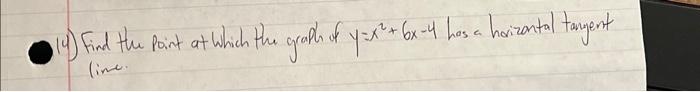 14) Find the point at which the graph of y=x²+6x-4 has a horizontal tangent
line.